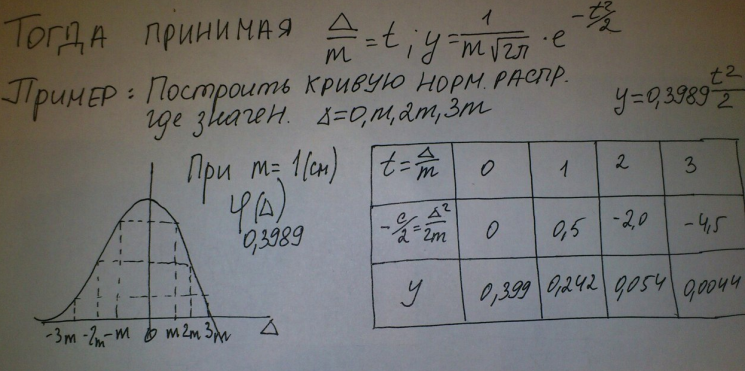 Тогда принимая Δ/m = t ; y = 1/(m√2π) · e^(-t²/2)
Пример: Построить кривую норм. распр.
где значен. Δ=0,m,2m,3m
y=0,3989 t²/2
При m=1(см)
φ(Δ)
0,3989
-3m -2m -m 0 m 2m 3m Δ
t=Δ/m 0 1 2 3
-c/2=Δ²/2m 0 0,5 -2,0 -4,5
y 0,399 0,242 0,054 0,0044